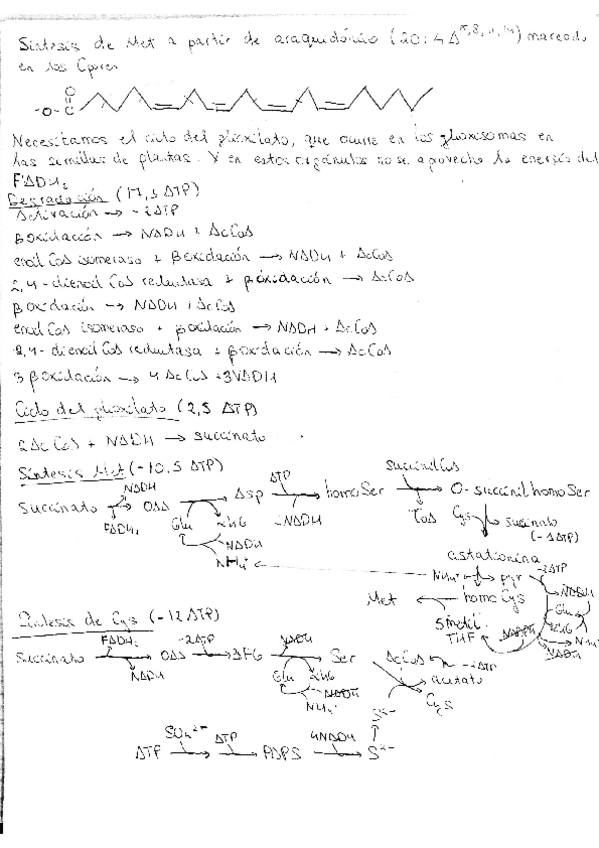 Síntesis de Met a partir de araquidónico (20:4 Δ5,8,11,14) marcado
en los Cpares
-O-C=O
Necesitamos el ciclo del glioxilato, que ocurre en los glioxisomas en
las semillas de plantas. Y en estos orgánulos no se aprovecha la energía del
FADH2
Degradación (17,5 ATP)
Activación → -2ATP
β oxidación → NADH + AcCoA
enoil CoA isomerasa + β oxidación → NADH + AcCoA
2,4-dienoil CoA reductasa + β oxidación → AcCoA
β oxidación → NADH + AcCoA
enoil CoA isomerasa + β oxidación → NADH + AcCoA
2,4-dienoil CoA reductasa + β oxidación → AcCoA
3 β oxidación → 4 AcCoA + 3NADH
Ciclo del glioxilato (2,5 ATP)
2AcCoA + NADH → succinato
Síntesis Met (-10,5 ATP)
succinato → OAA → Asp → homoSer → O-succinil homoSer
NADH
FADH2
Glu
αKG
NADH
NH4+
ATP
NADH
Succinil CoA
CoA
Cys
succinato
(-1ATP)
cistationina
NH4+ pyr
-2ATP
Met ← homoCys
5metil
THF
NADH
Glu
αKG
NH4+
NADPH
NADH
Síntesis de Cys (-12ATP)
succinato → OAA → 3PG → Ser
FADH2
NADH
-2ATP
NADH
Glu αKG
NADH
NH4+
AcCoA
-2ATP
acetato
Cys
S2-
SO42- ATP 4NADH
ATP → PAPS → S2-